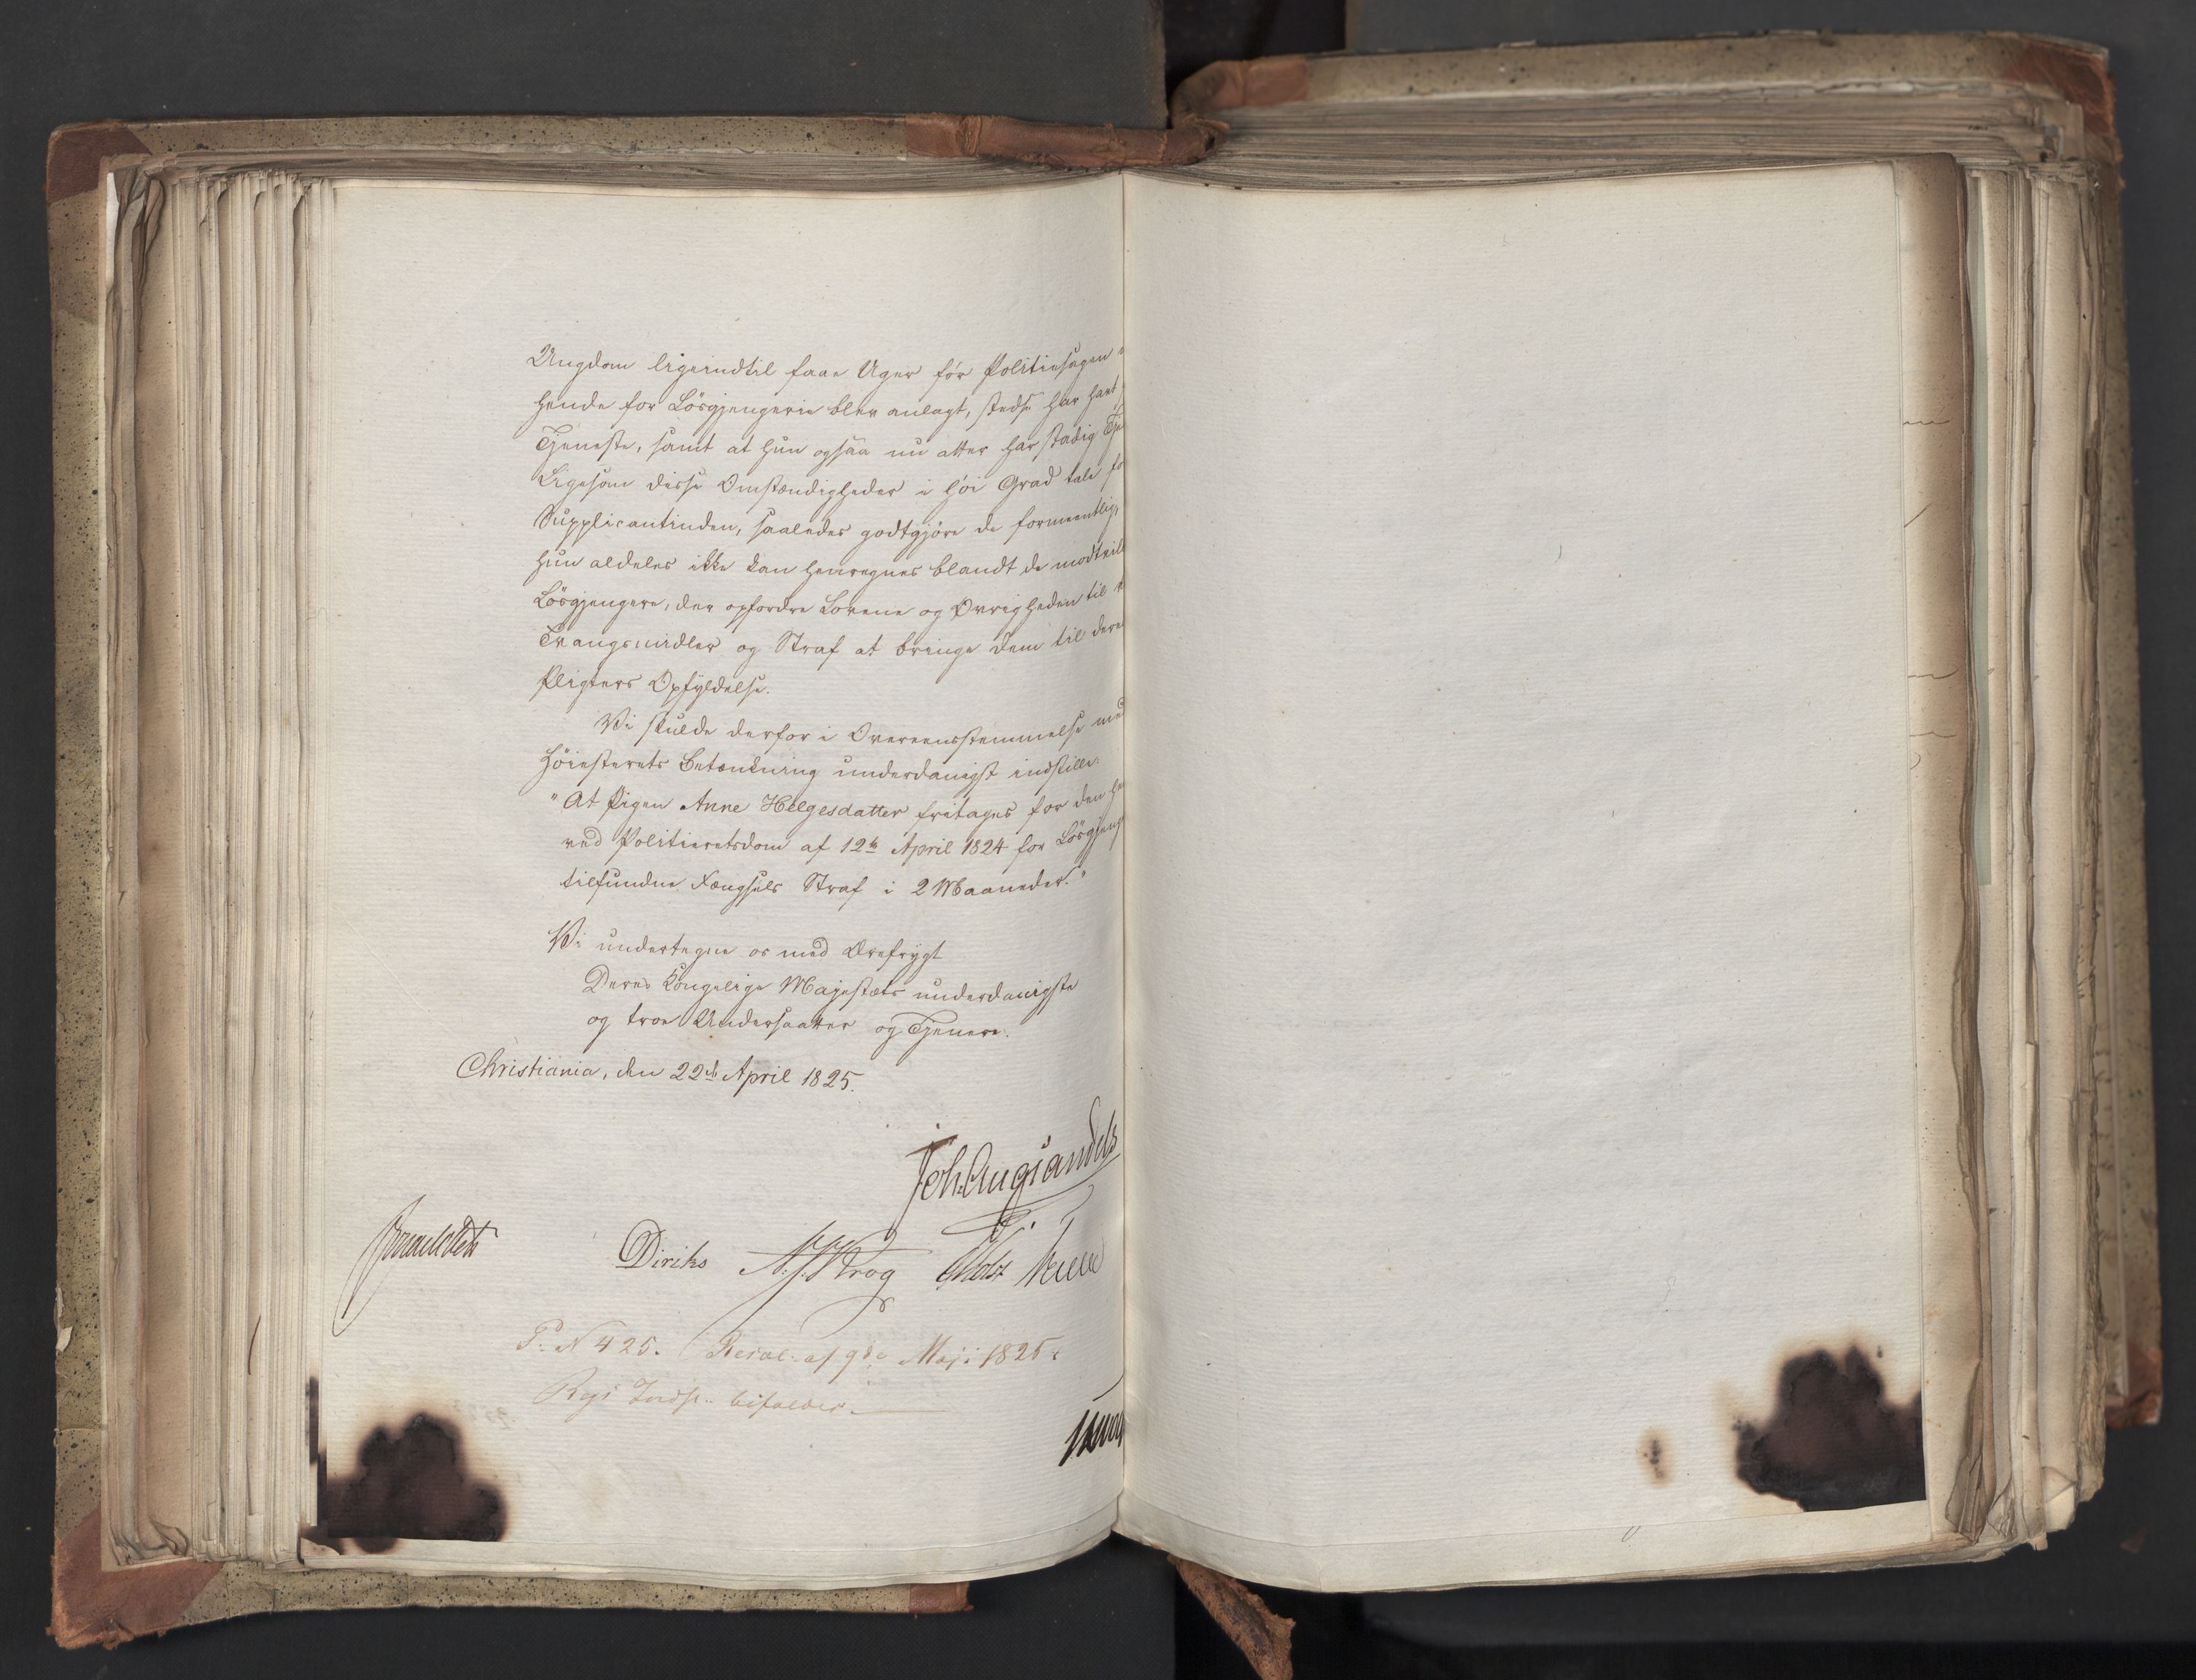 Ungdom ligeindtil faae Uger før Politiesagen
hende for Løsgjengerie blev anlagt, stedse har havt
Tjeneste, samt at hun ogsaa nu atter har stadig Tje
Ligesom disse Omstændigheder i høi Grad tale fo
Supplicantinden, saaledes godtgjøre de formeentlig,
hun aldeles ikke kan henregnes blandt de modvill
Løsgjengere, der opfordre Lovene og Øvrigheden til
Tvangsmidler og Straf at bringe dem til dere
Pligters Opfyldelse.
Vi skulde derfor i Overeensstemmelse med
Høiesterets Betænkning underdanigst indstille:
"At Pigen Anne Helgesdatter fritages for den he
ved Politieretsdom af 12te April 1824 for Løsgjeng
tilfundne Fængsels Straf i 2 Maaneder."
Vi undertegne os med Ærefrygt
Deres Kongelige Majestæts underdanigste
og troe Undersaatter og Tjenere.
Christiania, den 22de April 1825.
Joh. Aug. Sandels
Diriks N. J. Krog Holst
P. N 425. Resol. af 9de Maji 1825:
Regj. Indst. bifaldes.